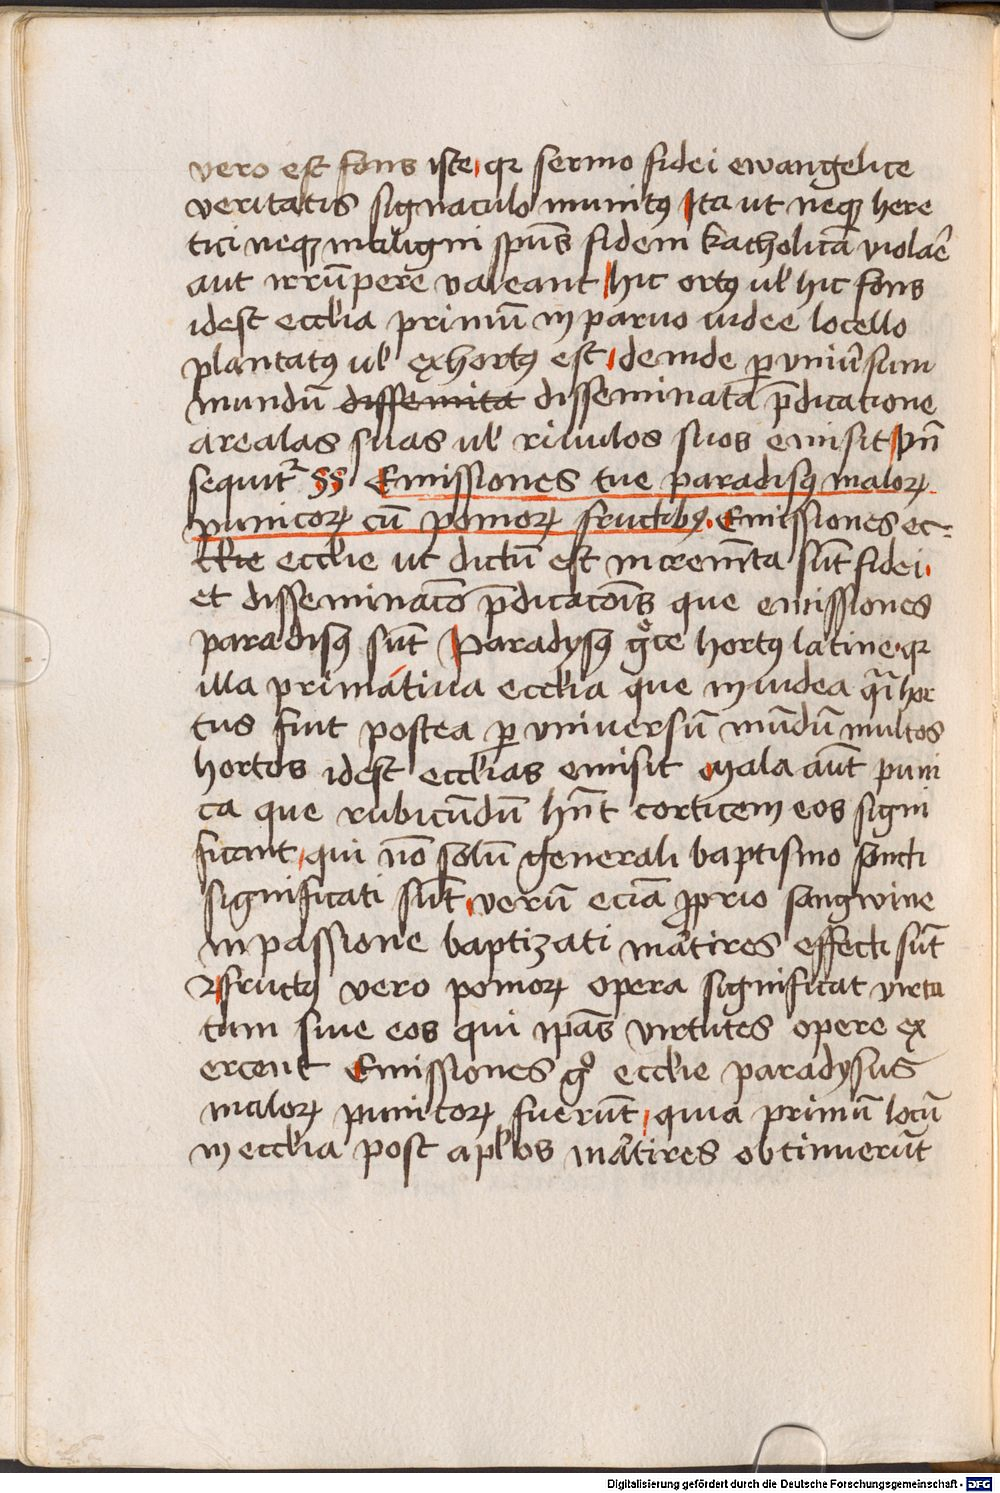 vero est fons iste qꝛ sermo fidei ewangelice
veritatis signaculo munitꝰ Ita ut neqꝫ here
tici neqꝫ maligni sp̄us fidem katholicā violar̄e
aut irrūpere valeant hic ortꝰ ul̕ hic fons
idest eccl̕ia primū in paruo iudee locello
plantatꝰ ul̕ exhortꝰ est deinde ꝑ uniu̕sum
mundū dissemita disseminata p̄dicatione
arealas suas ul̕ riuulos suos emisit Vn̄
sequit᷑ §§ Emissiones tue paradisꝰ maloꝝ
punicoꝝ cū pomoꝝ fructibꝰ. Emissiones ec-
cl̕ie eccl̕ie ut dictū est increm̄ta sūt fidei
et disseminac̄o p̄dicac̄ois que emissiones
paradisꝰ sūt Paradysꝰ gͤce hortꝰ latine qꝛ
illa primatiua eccl̕ia que in iudea q̄i hor
tus fuit postea ꝑ vniversū mūdū multos
hortos idest eccl̕ias emisit Mala aūt puni
ca que rubicūdū hn̄t corticem eos signi
ficant qui nō solū generali baptismo sancti
significati sūt verū eciā ꝓprio sangwine
in passione baptizati mar̄tires effecti sūt
⁊ fructꝰ vero pomoꝝ opera significat virtu
tum siue eos qui ip̄as virtutes opere ex
ercent Emissiones gͦ eccl̕ie paradysus
maloꝝ punicoꝝ fuerūt quia primū locū
in eccl̕ia post apl̕os mar̄tires obtinuerūt
Digitalisierung gefördert durch die Deutsche Forschungsgemeinschaft - DFG